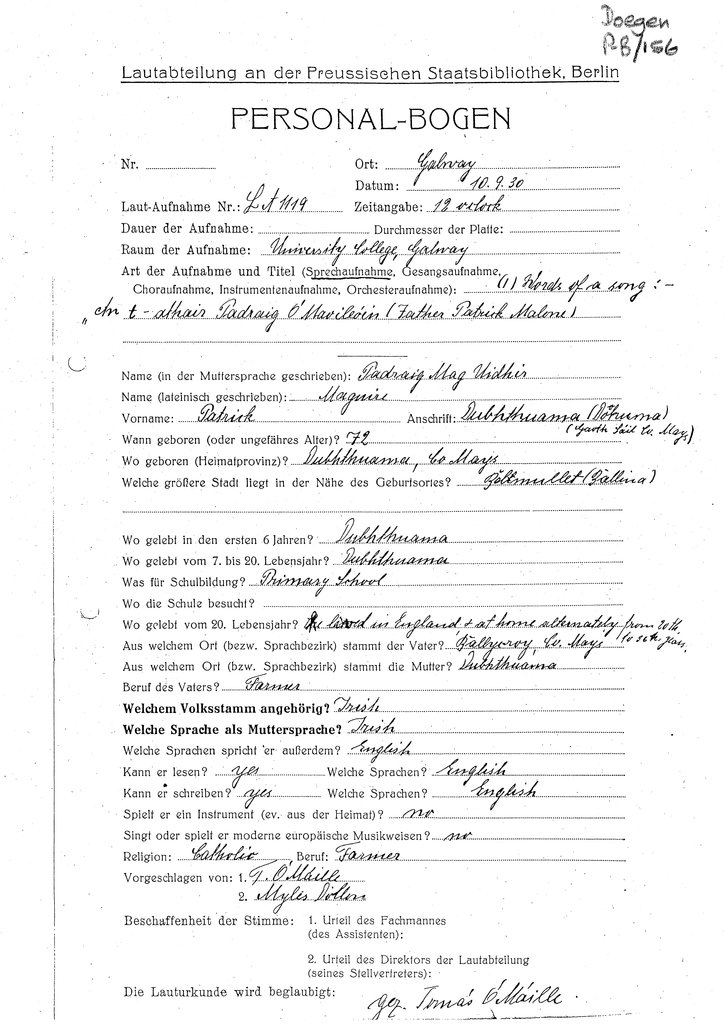 Doegen
RB/156
Lautabteilung an der Preussischen Staatsbibliothek, Berlin
PERSONAL-BOGEN
Nr. Ort: Galway
Datum: 10.9.30
Laut-Aufnahme Nr.: LA 1119 Zeitangabe: 12 oclock
Dauer der Aufnahme: Durchmesser der Platte:
Raum der Aufnahme: University College, Galway
Art der Aufnahme und Titel (Sprechaufnahme, Gesangsaufnahme,
Choraufnahme, Instrumentenaufnahme, Orchesteraufnahme): (1) Words of a song:-
"An t-athair Padraig O'Mavileóin (Father Patrick Malone)
Name (in der Muttersprache geschrieben): Padraig Mag Uidhir
Name (lateinisch geschrieben): Maguire
Vorname: Patrick Anschrift: Dubhthuama (Dótuma)
(Gaoth Sáil Co. Mayo)
Wann geboren (oder ungefähres Alter)? 72
Wo geboren (Heimatprovinz)? Dubhthuama, Co Mayo
Welche größere Stadt liegt in der Nähe des Geburtsortes? Beltmullet (Ballina)
Wo gelebt in den ersten 6 Jahren? Dubhthuama
Wo gelebt vom 7. bis 20. Lebensjahr? Dubhthuama
Was für Schulbildung? Primary School
Wo die Schule besucht?
Wo gelebt vom 20. Lebensjahr? He lived in England & at home alternately from 20th
to 56th year.
Aus welchem Ort (bezw. Sprachbezirk) stammt der Vater? Ballycroy, Co. Mayo
Aus welchem Ort (bzw. Sprachbezirk) stammt die Mutter? Dubhthuama
Beruf des Vaters? Farmer
Welchem Volksstamm angehörig? Irish
Welche Sprache als Muttersprache? Irish
Welche Sprachen spricht er außerdem? English
Kann er lesen? yes Welche Sprachen? English
Kann er schreiben? yes Welche Sprachen? English
Spielt er ein Instrument (ev. aus der Heimat)? no
Singt oder spielt er moderne europäische Musikweisen? no
Religion: Catholic Beruf: Farmer
Vorgeschlagen von: 1. T. O'Máille
2. Myles Dillon
Beschaffenheit der Stimme: 1. Urteil des Fachmannes
(des Assistenten):
2. Urteil des Direktors der Lautabteilung
(seines Stellvertreters):
Die Lauturkunde wird beglaubigt: gez. Tomás O'Máille.